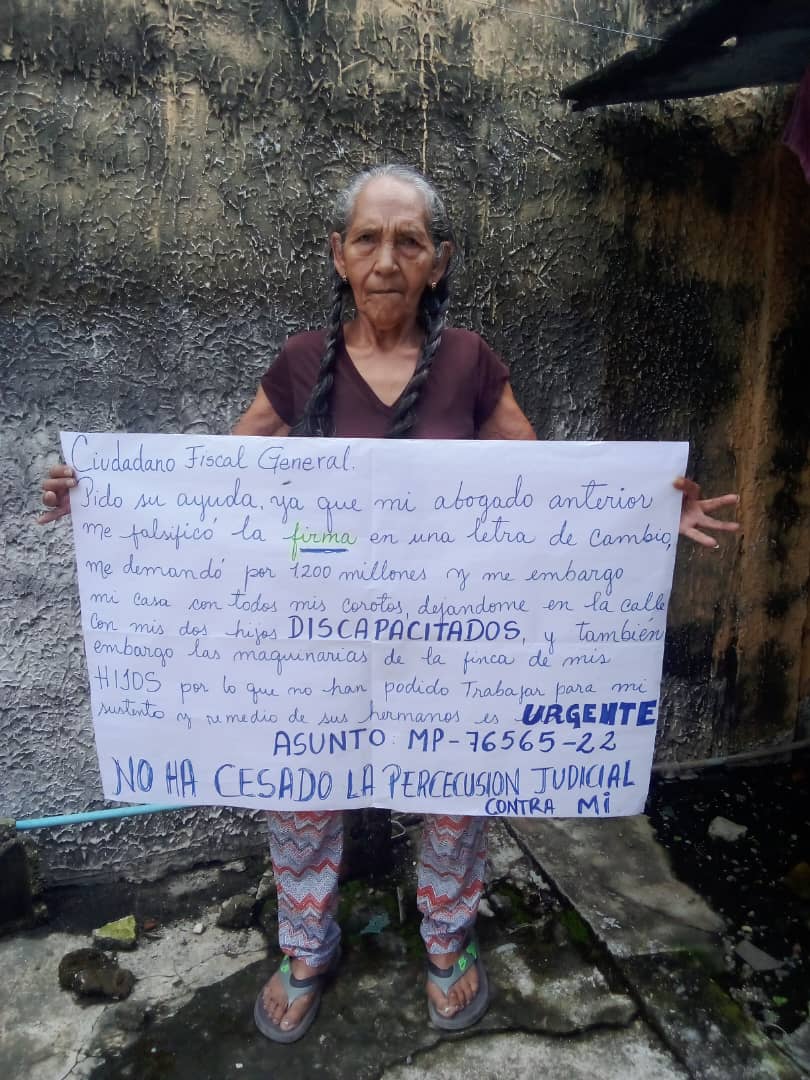 Ciudadano Fiscal General.
Pido su ayuda, ya que mi abogado anterior
me falsificó la firma en una letra de cambio,
me demandó por 1200 millones y me embargo
mi casa con todos mis corotos, dejandome en la calle
con mis dos hijos DISCAPACITADOS, y también
embargo las maquinarias de la finca de mis
HIJOS por lo que no han podido Trabajar para mi
sustento y remedio de sus hermanos es URGENTE
ASUNTO: MP-76565-22
NO HA CESADO LA PERCECUSION JUDICIAL
CONTRA Mi